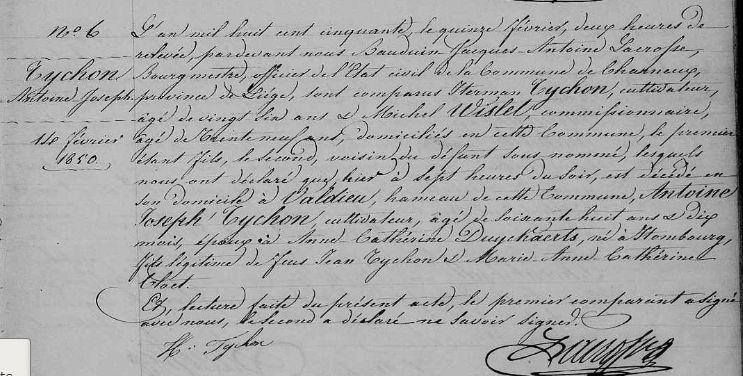 No 6
Tychon
Antoine Joseph
14 février
1850
L'an mil huit cent cinquante, le quinze février, deux heures de
relevée, pardevant nous Bauduin Jacques-Antoine Lacrosse,
Bourgmestre, officier de l'Etat civil de la Commune de Charneux,
province de Liége, sont comparus Herman Tychon, cultivateur,
âgé de vingt six ans & Michel Wislet, commissionnaire,
âgé de trente neuf ans, domiciliés en cette Commune, le premier
étant fils, le second, voisin du défunt sous nommé, lesquels
nous ont déclaré que hier à sept heures du soir, est décédé en
son domicile à Valdieu, hameau de cette Commune, Antoine
Joseph Tychon, cultivateur, âgé de soixante huit ans & dix
mois, époux à Anne Cathérine Duyckaerts, né à Hombourg,
fils légitime de feus Jean Tychon & Marie-Anne Cathérine
Et, lecture faite du présent acte, le premier comparant a signé
avec nous, le second a déclaré ne savoir signer.
H. Tychon
Lacrosse